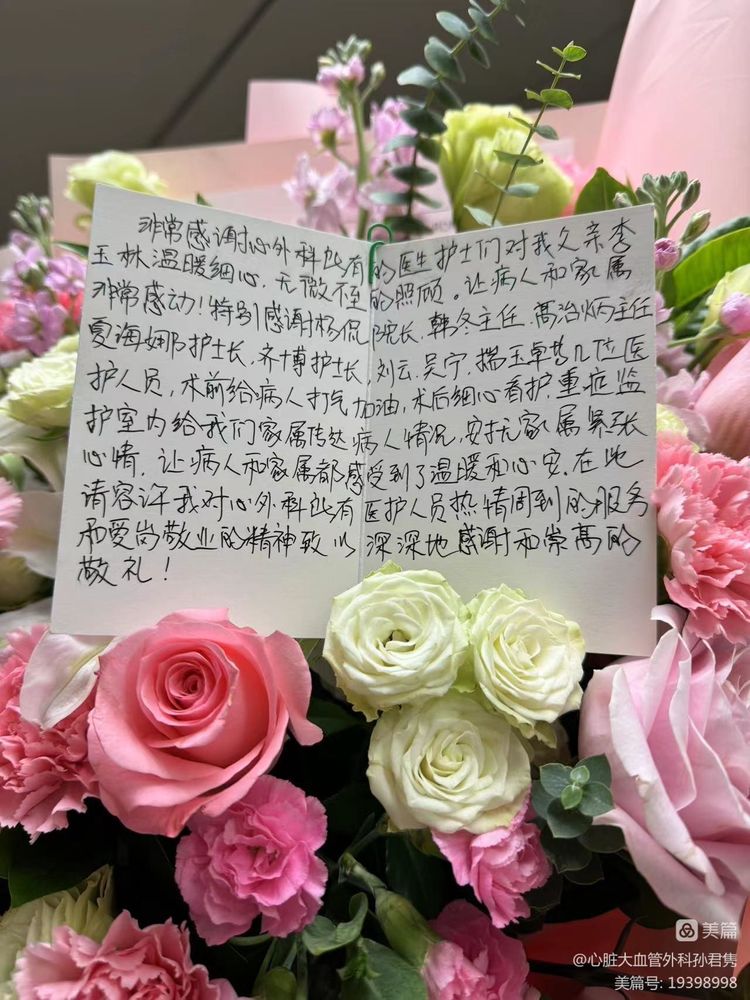 非常感谢心外科所有的医生护士们对我父亲李
玉林温暖细心,无微不至的照顾。让病人和家属
非常感动!特别感谢杨侃院长,韩冬主任,高治炳主任
夏海娜护士长,齐博护士长,刘云,吴宁,揣玉卓等几位医
护人员,术前给病人打气加油,术后细心看护,重症监
护室内给我们家属传达病人情况,安抚家属紧张
心情,让病人和家属都感受到了温暖和心安,在此
请容许我对心外科所有医护人员热情周到的服务
和爱岗敬业的精神致以深深地感谢和崇高的
敬礼!
美篇
@心脏大血管外科孙君隽
美篇号: 19398998